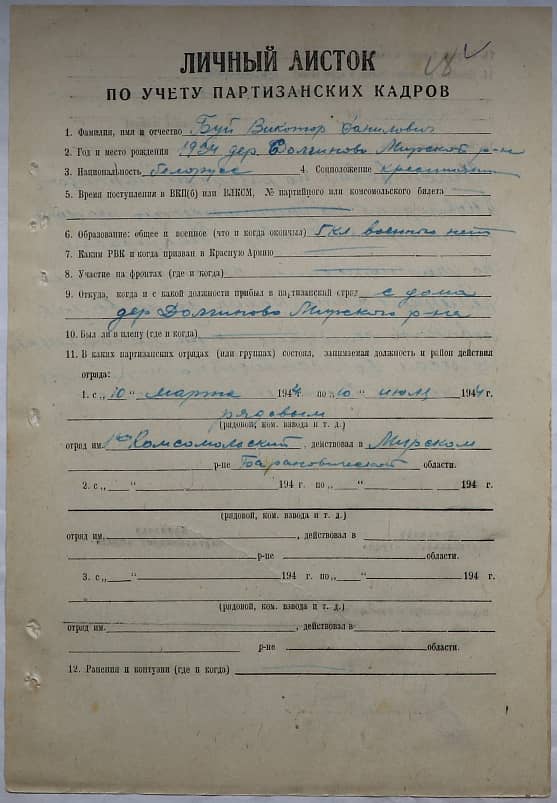 ЛИЧНЫЙ ЛИСТОК
ПО УЧЕТУ ПАРТИЗАНСКИХ КАДРОВ
1. Фамилия, имя и отчество Буй Виктор Данилович
2. Год и место рождения дер. Долгиново Мирского р-на
3. Национальность белорус 4. Соцположение крестьянин
5. Время поступления в ВКП(б) или ВЛКСМ, № партийного или комсомольского билета
6. Образование: общее и военное (что и когда окончил) 5 кл. военного нет
7. Каким РВК и когда призван в Красную Армию
8. Участие на фронтах (где и когда)
9. Откуда, когда и с какой должности прибыл в партизанский отряд с дома
дер Долгиново Мирского р-на
10. Был ли в плену (где и когда)
11. В каких партизанских отрядах (или группах) состоял, занимаемая должность и район действия
отряда:
1. с „10" марта 1944 по „10" июль 1944 г.
рядовым
(рядовой, ком. взвода и т. д.)
отряд им. Комсомольский, действовал в Мирском
р-не Барановичской области.
2. с „ " 194 г. по „ " 194 г.
(рядовой, ком. взвода и т. д.)
отряд им. , действовал в
р-не области.
3. с „ " 194 г. по „ " 194 г.
(рядовой, ком. взвода и т. д.)
отряд им. , действовал в
р-не области.
12. Ранения и контузии (где и когда)